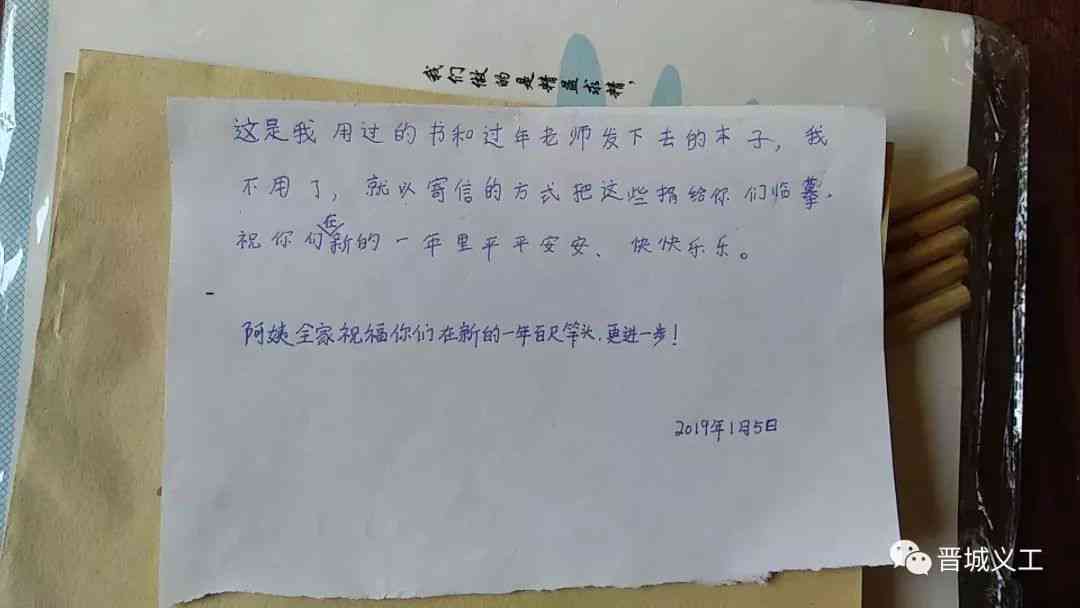 我们做的是精益求精,
这是我用过的书和过年老师发下去的本子,我
不用了,就以寄信的方式把这些捐给你们临摹.
祝你们在新的一年里平平安安、快快乐乐。
阿姨全家祝福你们在新的一年百尺竿头.更进一步!
2019年1月5日
晋城义工